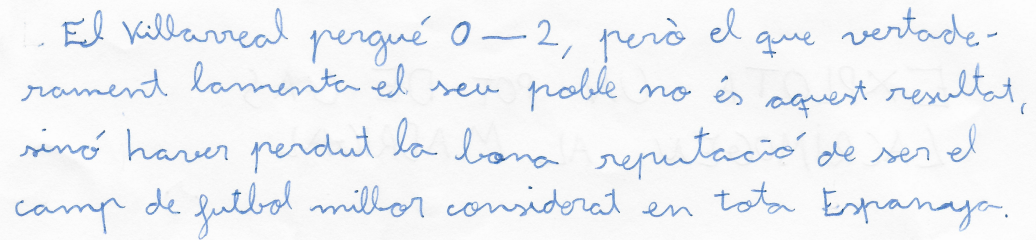 El Villarreal pergué 0-2, però el que vertade-
rament lamenta el seu poble no és aquest resultat,
sinó haver perdut la bona reputació de ser el
camp de futbol millor considerat en tota Espanaya.